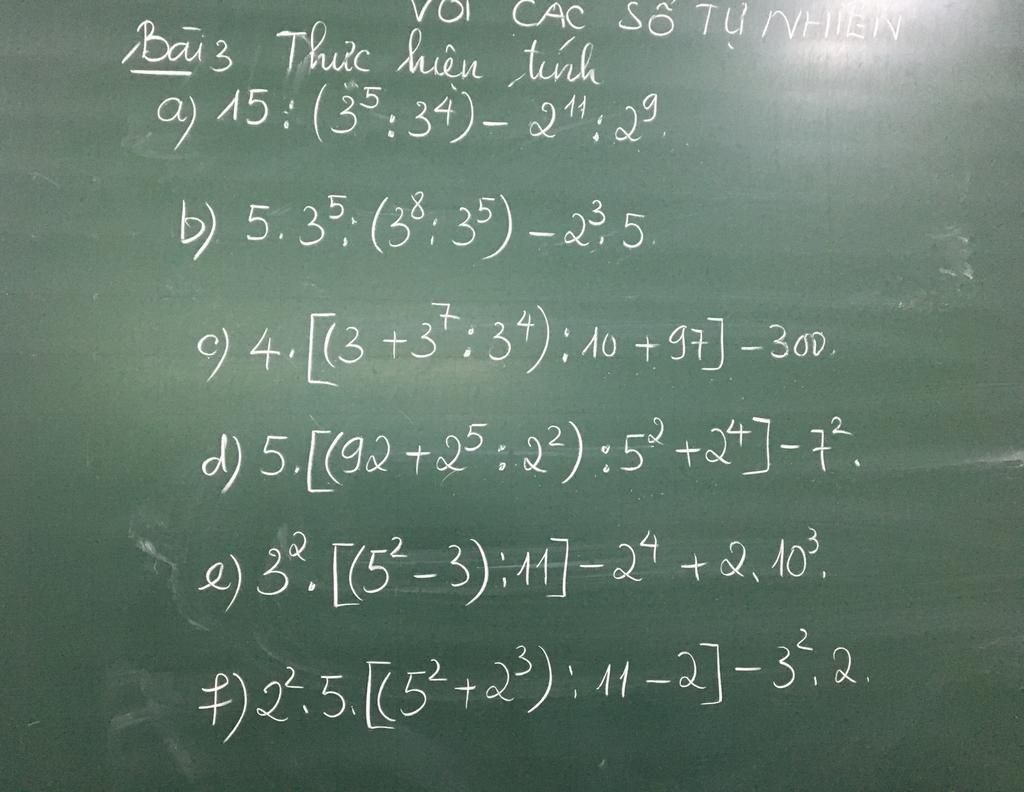 VỚI CÁC SỐ TỰ NHIÊN
Bài 3 Thực hiện tính
a) 15 : (3⁵ : 3⁴) - 2¹¹ : 2⁹.
b) 5 . 3⁵ : (3⁸ : 3⁵) - 2³ . 5.
c) 4 . [(3 + 3⁷ : 3⁴) : 10 + 97] - 300.
d) 5 . [(92 + 2⁵ : 2²) : 5² + 2⁴] - 7².
e) 3² . [(5² - 3) : 11] - 2⁴ + 2 . 10³.
f) 2² . 5 . [(5² + 2³) : 11 - 2] - 3² . 2.